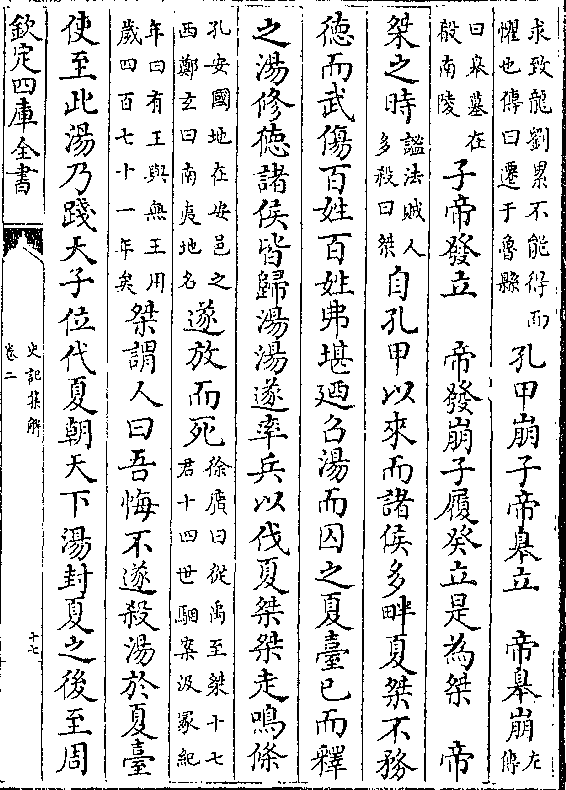 求致龍劉累不能得而
懼也傳曰遷于魯縣
孔甲崩子帝皐立　帝皐崩
左
傳
曰皐墓在
殽南陵
子帝發立　帝發崩子履癸立是為桀　帝
桀之時
諡法賊人
多殺曰桀
自孔甲以來而諸侯多畔夏桀不務
徳而武傷百姓百姓弗堪廼召湯而囚之夏臺已而釋
之湯修徳諸侯皆歸湯湯遂率兵以伐夏桀桀走鳴條
孔安國地在安邑之
西鄭玄曰南夷地名
遂放而死
徐廣曰從禹至桀十七
君十四世駰案汲冢紀
年曰有王與無王用
歲四百七十一年矣
桀謂人曰吾悔不遂殺湯於夏臺
使至此湯乃踐天子位代夏朝天下湯封夏之後至周
欽定四庫全書
史記集解
卷二
十七